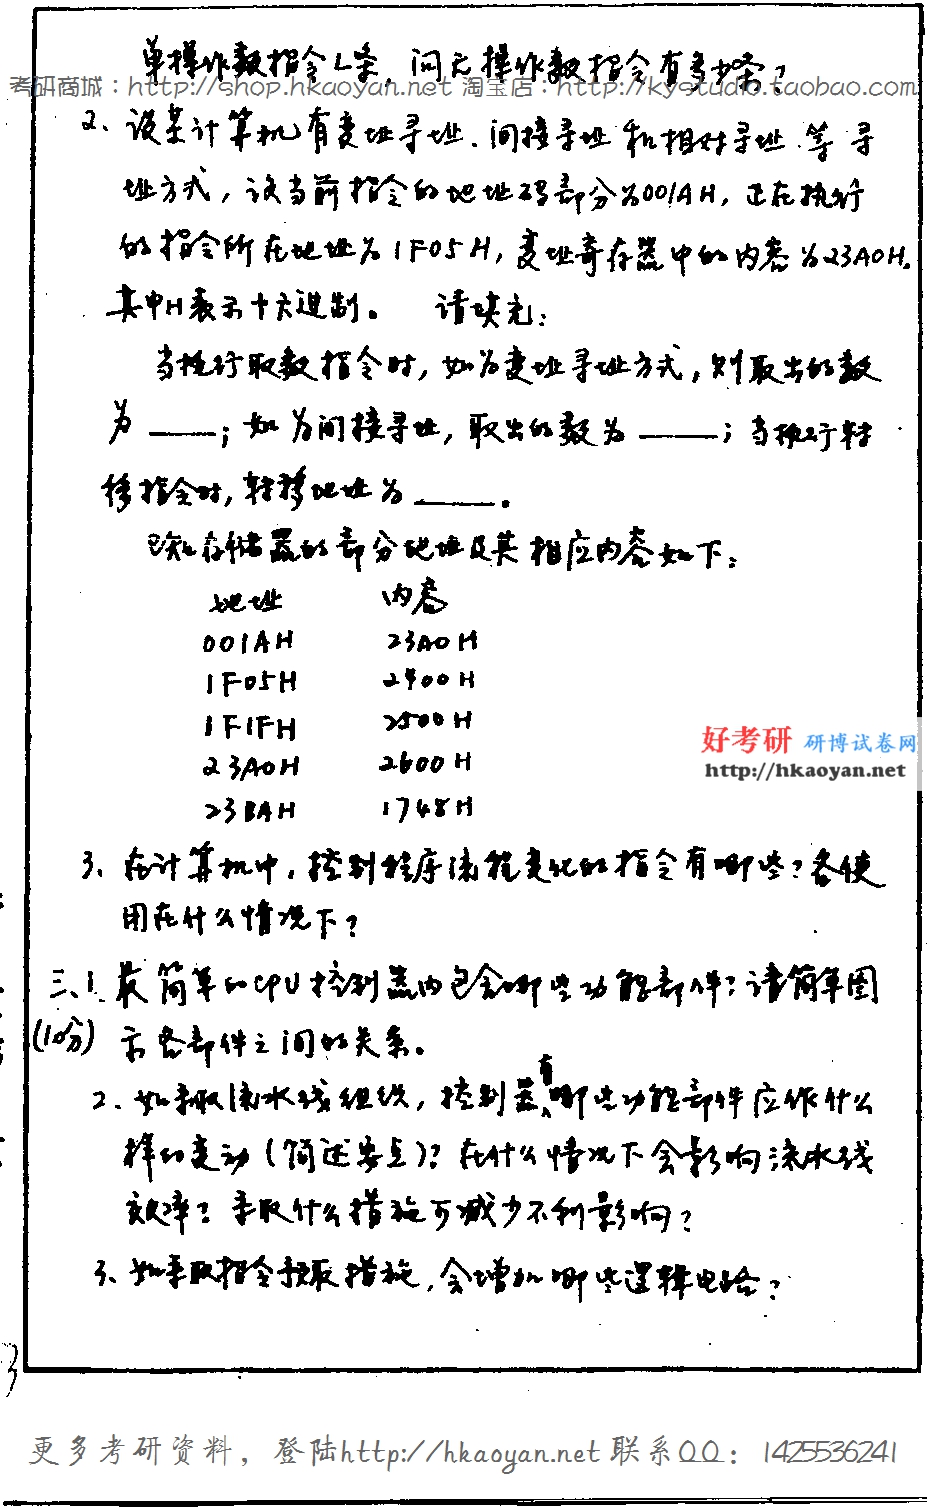 单操作数指令L条，问无操作数指令有多少条？
考研商城：http://shop.hkaoyan.net 淘宝店：http://kystudio.taobao.com
2、设某计算机有变址寻址、间接寻址和相对寻址等寻
址方式，设当前指令的地址码部分为001AH，正在执行
的指令所在地址为1F05H，变址寄存器中的内容为23A0H。
其中H表示十六进制。 请填充：
当执行取数指令时，如为变址寻址方式，则取出的数
为 ____；如为间接寻址，取出的数为 ____；当执行转
移指令时，转移地址为 ____。
已知存储器的部分地址及其相应内容如下：
地址 内容
001AH 23A0H
1F05H 2400H
1F1FH 2500H
23A0H 2600H
23BAH 1748H
好考研 研博试卷网
http://hkaoyan.net
3、在计算机中，控制程序流程变化的指令有哪些？各使
用在什么情况下？
三、1、最简单的CPU控制器内包含哪些功能部件？请简单图
(10分) 示各部件之间的关系。
2、如采取流水线组织，控制器有哪些功能部件应作什么
样的变动（简述要点）？在什么情况下会影响流水线
效率？采取什么措施可减少不利影响？
3、如采取指令预取措施，会增加哪些逻辑电路？
更多考研资料，登陆http://hkaoyan.net 联系QQ：1425536241